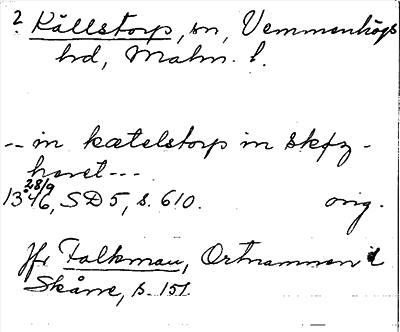 ? Källstorp, sn, Vemmenhögs
hd, Malm. l.
-- in kætelstorp in skfz-
heret ---
13 28/9 46, SD 5, s. 610. orig.
Jfr Falkman, Ortnamnen i
Skåne, s. 151.